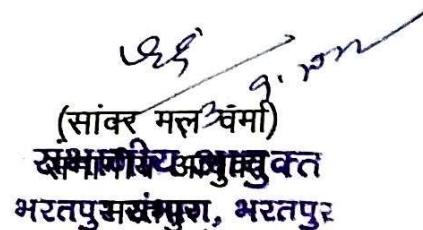 (सांवर मल वर्मा)
संभागीय आयुक्त
भरतपुर संभाग, भरतपुर